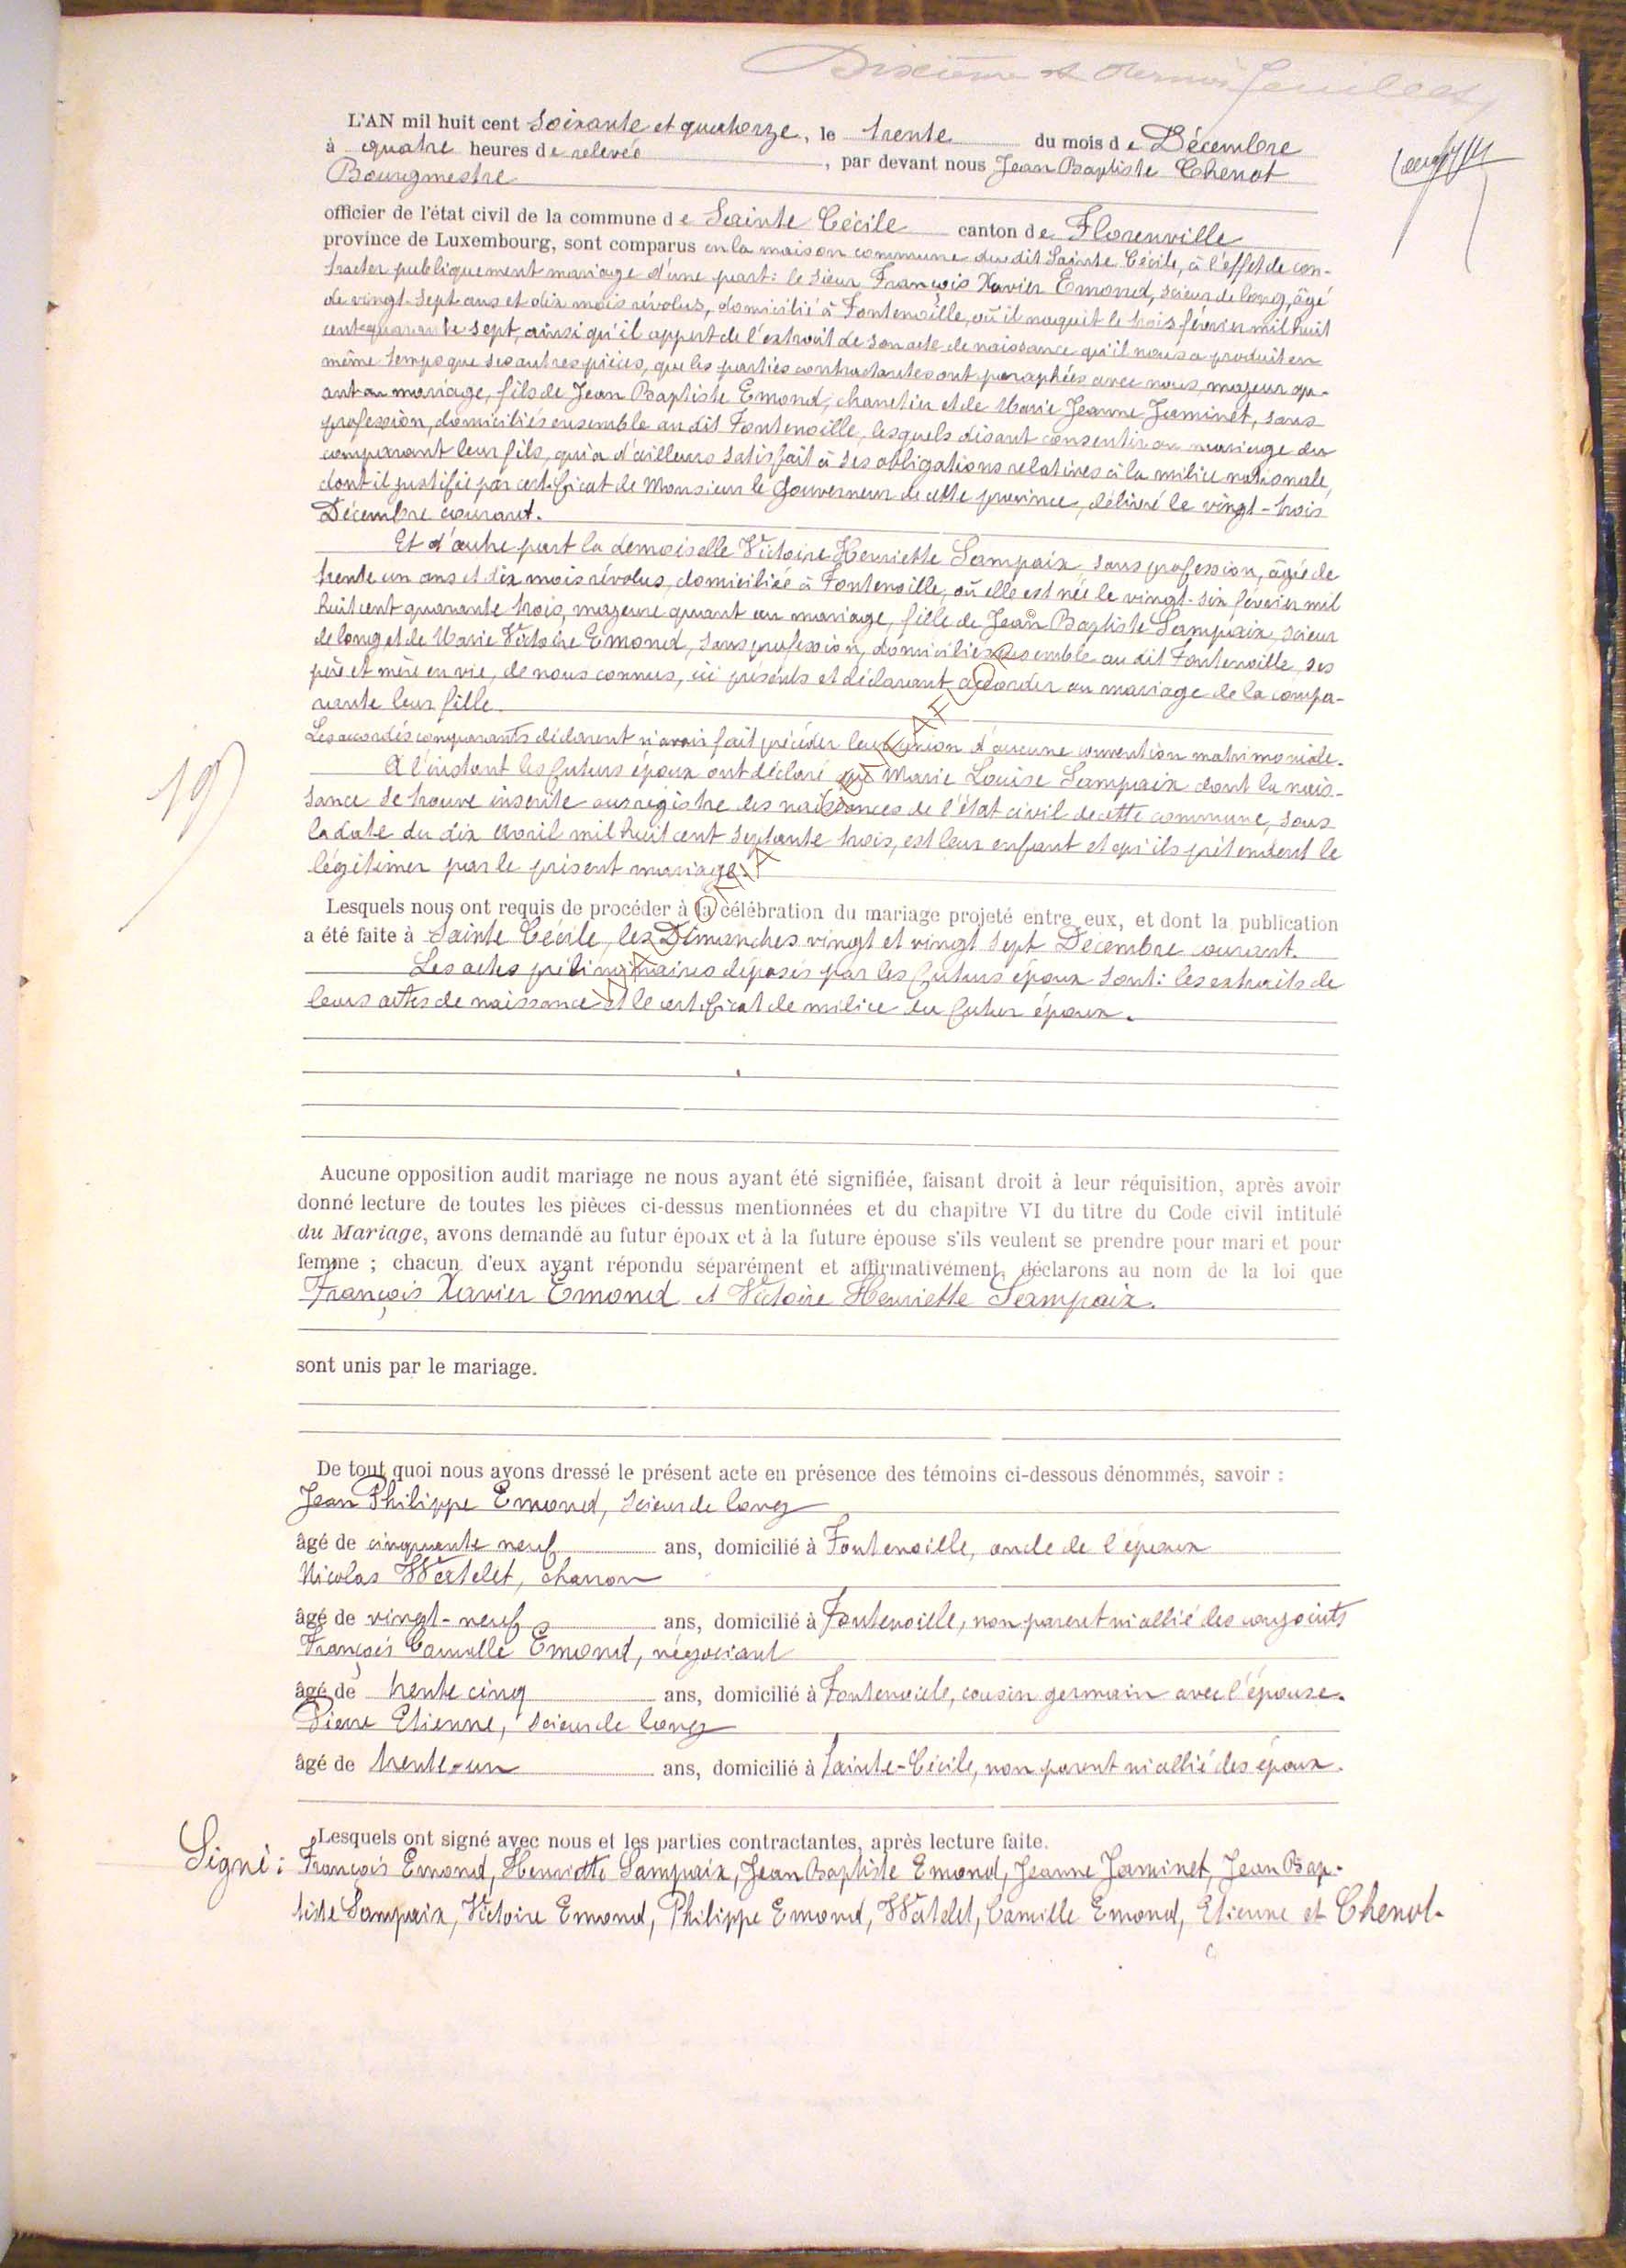 Dixième et dernier feuillet
L'AN mil huit cent soixante et quatorze, le trente du mois de Décembre
à quatre heures de relevée, par devant nous Jean Baptiste Chenot
Bourgmestre
officier de l'état civil de la commune de Sainte Cécile canton de Florenville
province de Luxembourg, sont comparus en la maison commune du dit Sainte Cécile, à l'effet de con-
tracter publiquement mariage d'une part: le sieur François Xavier Emond, scieur de long, âgé
de vingt-sept ans et dix mois révolus, domicilié à Fontenoille, où il naquit le trois février mil huit
cent quarante sept, ainsi qu'il appert de l'extrait de son acte de naissance qu'il nous a produit en
même temps que ses autres pièces, que les parties contractantes ont paraphées avec nous, majeur qu-
ant au mariage, fils de Jean Baptiste Emond, charretier et de Marie Jeanne Jaminet, sans
profession, domiciliés ensemble au dit Fontenoille, lesquels disant consentir au mariage du
comparant leur fils, qui a d'ailleurs satisfait à ses obligations relatives à la milice nationale,
dont il justifie par certificat de Monsieur le Gouverneur de cette province, délivré le vingt-trois
Décembre courant.
Et d'autre part la demoiselle Victoire Henriette Sampaix, sans profession, âgée de
trente un ans et dix mois révolus, domiciliée à Fontenoille, où elle est née le vingt-six février mil
huit cent quarante trois, majeure quant au mariage, fille de Jean Baptiste Sampaix, scieur
de long et de Marie Victoire Emond, sans profession, domiciliés ensemble au dit Fontenoille, ses
père et mère en vie, de nous connus, ici présents et déclarant accorder au mariage de la compa-
rante leur fille.
Les accordés comparants déclarent n'avoir fait précéder leur union d'aucune convention matrimoniale.
A l'instant les futurs époux ont déclaré que Marie Louise Sampaix dont la nais-
sance se trouve inscrite aux registre des naissances de l'état civil de cette commune, sous
la date du dix avril mil huit cent septante trois, est leur enfant et qu'ils prétendent le
légitimer par le présent mariage.
19
Lesquels nous ont requis de procéder à la célébration du mariage projeté entre eux, et dont la publication
a été faite à Sainte Cécile, les Dimanches vingt et vingt sept Décembre courant.
Les actes préliminaires déposés par les futurs époux sont: les extraits de
leurs actes de naissance et le certificat de milice du futur époux.
Aucune opposition audit mariage ne nous ayant été signifiée, faisant droit à leur réquisition, après avoir
donné lecture de toutes les pièces ci-dessus mentionnées et du chapitre VI du titre du Code civil intitulé
du Mariage, avons demandé au futur époux et à la future épouse s'ils veulent se prendre pour mari et pour
femme ; chacun d'eux ayant répondu séparément et affirmativement, déclarons au nom de la loi que
François Xavier Emond et Victoire Henriette Sampaix.
sont unis par le mariage.
De tout quoi nous avons dressé le présent acte en présence des témoins ci-dessous dénommés, savoir :
Jean Philippe Emond, scieur de long
âgé de cinquante neuf ans, domicilié à Fontenoille, oncle de l'époux
Nicolas Watelet, charron
âgé de vingt-neuf ans, domicilié à Fontenoille, non parent ni allié des conjoints
François Camille Emond, négociant
âgé de trente cinq ans, domicilié à Fontenoille, cousin germain avec l'épouse.
Pierre Etienne, scieur de long
âgé de trente-un ans, domicilié à Sainte-Cécile, non parent ni allié des époux.
Lesquels ont signé avec nous et les parties contractantes, après lecture faite.
Signé: François Emond, Henriette Sampaix, Jean Baptiste Emond, Jeanne Jaminet, Jean Bap-
tiste Sampaix, Victoire Emond, Philippe Emond, Watelet, Camille Emond, Etienne et Chenot.